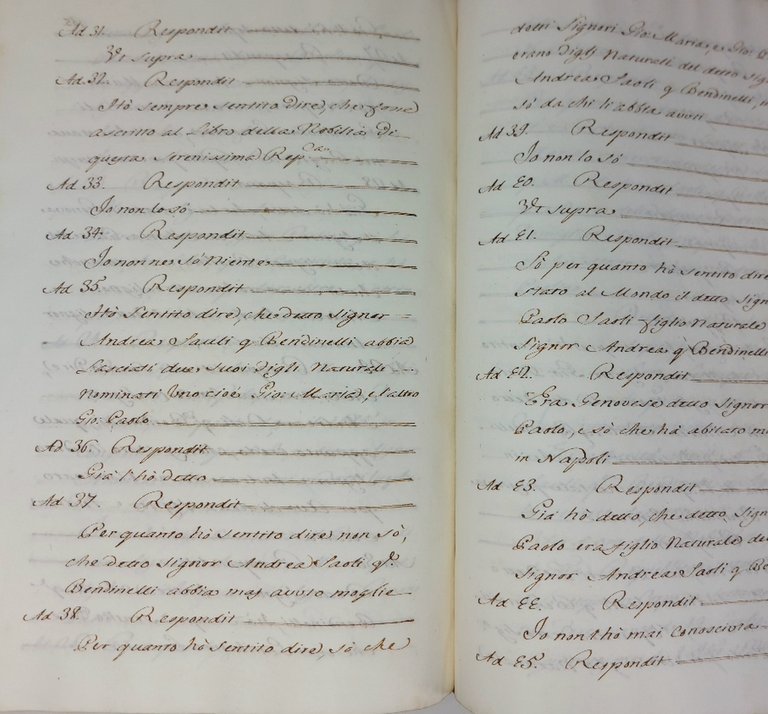 Ad 31. Respondit
Vt supra
Ad 32. Respondit
Hò sempre sentito dire, che fosse
ascritto al Libro della Nobiltà di
questa Serenissima Rep.ca
Ad 33. Respondit
Io non lo sò
Ad 34. Respondit
Io non ne sò niente
Ad 35. Respondit
Hò sentito dire, che detto Signor
Andrea Sauli q Bendinelli abbia
lasciati due suoi figli Naturali
nominati uno cioè Gio: Maria, e l'altro
Gio: Paolo
Ad 36. Respondit
Già l'hò detto
Ad 37. Respondit
Per quanto hò sentito dire non sò,
che detto Signor Andrea Saoli q.
Bendinelli abbia maj avuto moglie
Ad 38. Respondit
Per quanto hò sentito dire, sò che
detti Signori Gio: Maria, e Gio:
erano figli Naturali del detto Sig
Andrea Saoli q Bendinelli,
sò da chi li abbia avuti
Ad 39. Respondit
Io non lo sò
Ad 40. Respondit
Vt supra
Ad 41. Respondit
Sò per quanto hò sentito dire
stato al Mondo il detto Sign
Paolo Saoli figlio Naturale
Signor Andrea q Bendinelli
Ad 42. Respondit
Era Genovese detto Signor
Paolo, e sò che hà abitato
in Napoli
Ad 43. Respondit
Già hò detto, che detto Signor
Paolo era figlio Naturale de
Signor Andrea Saoli q Ben
Ad 44. Respondit
Io non l'hò mai conosciuta
Ad 45. Respondit